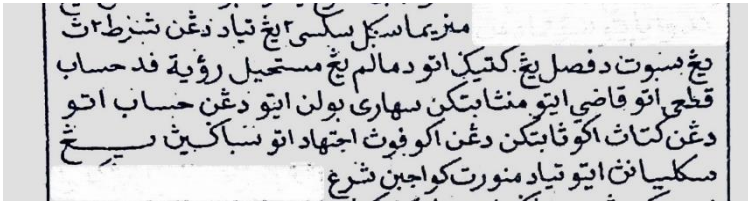 منريما سݢل سكسي٢ يڠ تياد دڠن شرط٢ ث
يڠ تسبوت دفصل يڠ كتيݢ اتو دمالم يڠ مستحيل رؤية فد حساب
قطعي اتو قاضي ايتو منثابتكن سهاري بولن ايتو دڠن حساب اتو
دڠن كتاث اكو ثابتكن دڠن اكو فوث اجتهاد اتو سباݢيث يڠ
سكليانث ايتو تياد منورت كواجبن شرع